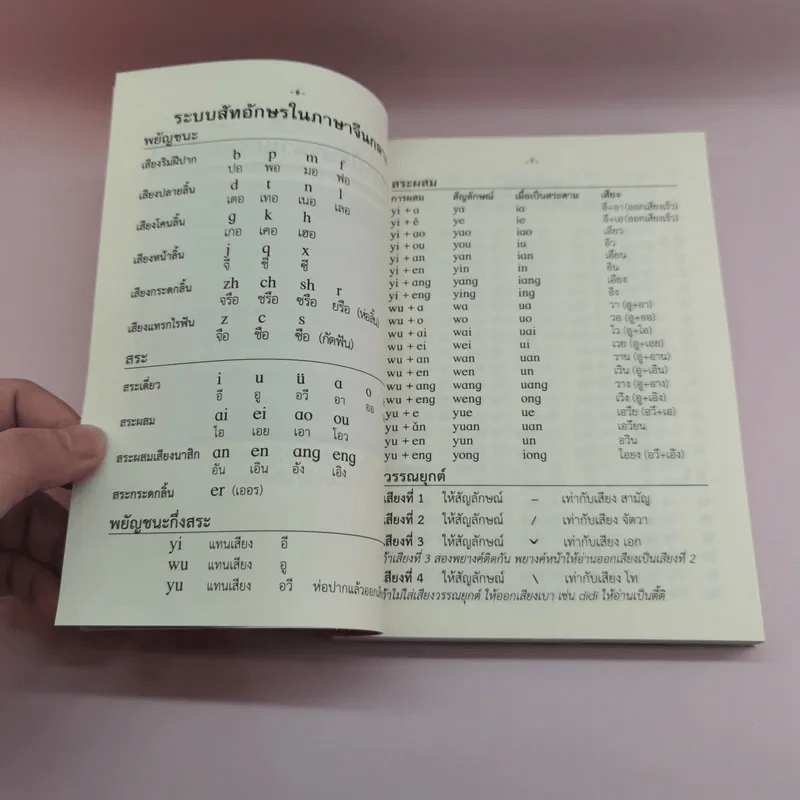 -6-
ระบบสัทอักษรในภาษาจีนกลาง
พยัญชนะ
เสียงริมฝีปาก b p m f
ปอ พอ มอ ฟอ
เสียงปลายลิ้น d t n l
เตอ เทอ เนอ เลอ
เสียงโคนลิ้น g k h
เกอ เคอ เฮอ
เสียงหน้าลิ้น j q x
จี ชี ซี
เสียงกระดกลิ้น zh ch sh r
จรือ ชรือ ซรือ ยรือ (ห่อลิ้น)
เสียงแทรกไรฟัน z c s
จือ ชือ ซือ (กัดฟัน)
สระ
สระเดี่ยว i u ü a o
อี อู อวี อา ออ
สระผสม ai ei ao ou
ไอ เอย เอา โอว
สระผสมเสียงนาสิก an en ang eng
อัน เอิน อัง เอิง
สระกระดกลิ้น er (เออร)
พยัญชนะกึ่งสระ
yi แทนเสียง อี
wu แทนเสียง อู
yu แทนเสียง อวี ห่อปากแล้วออก
-7-
สระผสม
การผสม สัญลักษณ์ เมื่อเป็นสระตาม เสียง
yi + a ya ia อี+อา (ออกเสียงเร็ว)
yi + ê ye ie อี+เอ (ออกเสียงเร็ว)
yi + ao yao iao เอียว
yi + ou you iu อิว
yi + an yan ian เอียน
yi + en yin in อิน
yi + ang yang iang เอียง
yi + eng ying ing อิง
wu + a wa ua วา (อู+อา)
wu + o wo uo วอ (อู+ออ)
wu + ai wai uai ไว (อู+ไอ)
wu + ei wei ui เวย (อู+เอย)
wu + an wan uan วาน (อู+อาน)
wu + en wen un เวิน (อู+เอิน)
wu + ang wang uang วาง (อู+อาง)
wu + eng weng ong เวิง (อู+เอิง)
yu + e yue ue เอวีย (อวี+เอ)
yu + ăn yuan uan เอวียน
yu + en yun un อวิน
yu + eng yong iong โอยง (อวี+เอิง)
วรรณยุกต์
เสียงที่ 1 ให้สัญลักษณ์ – เท่ากับเสียง สามัญ
เสียงที่ 2 ให้สัญลักษณ์ / เท่ากับเสียง จัตวา
เสียงที่ 3 ให้สัญลักษณ์ ˇ เท่ากับเสียง เอก
ถ้าเสียงที่ 3 สองพยางค์ติดกัน พยางค์หน้าให้อ่านออกเสียงเป็นเสียงที่ 2
เสียงที่ 4 ให้สัญลักษณ์ \ เท่ากับเสียง โท
ถ้าไม่ใส่เสียงวรรณยุกต์ ให้ออกเสียงเบา เช่น didi ให้อ่านเป็นตี้ติ